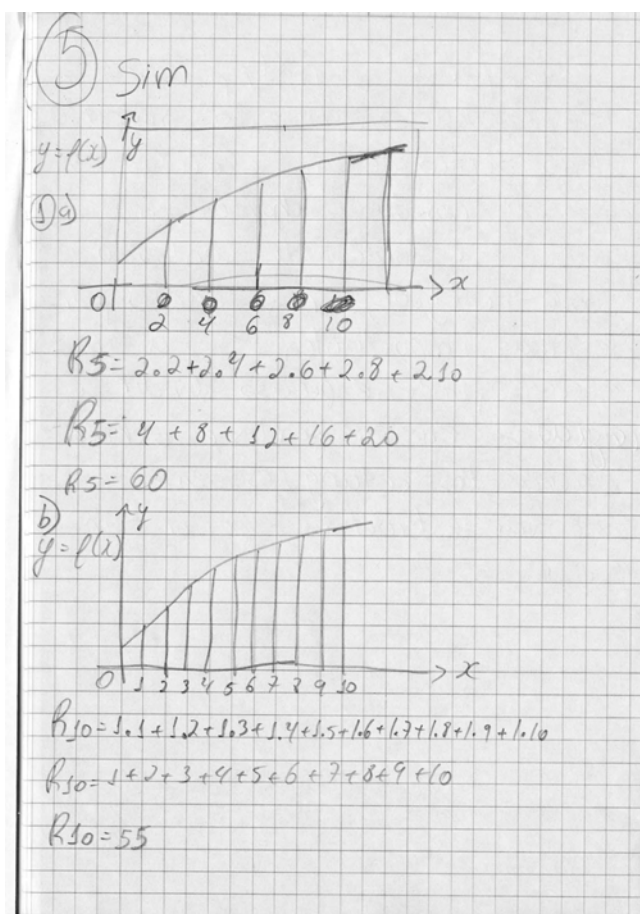 5
Sim
y
y=f(x)
1) a)
0 x
2 4 6 8 10
R5= 2.2+2.4+2.6+2.8+2.10
R5= 4+8+12+16+20
R5=60
b)
y
y=f(x)
0 1 2 3 4 5 6 7 8 9 10 x
R10=1.1+1.2+1.3+1.4+1.5+1.6+1.7+1.8+1.9+1.10
R10=1+2+3+4+5+6+7+8+9+10
R10=55